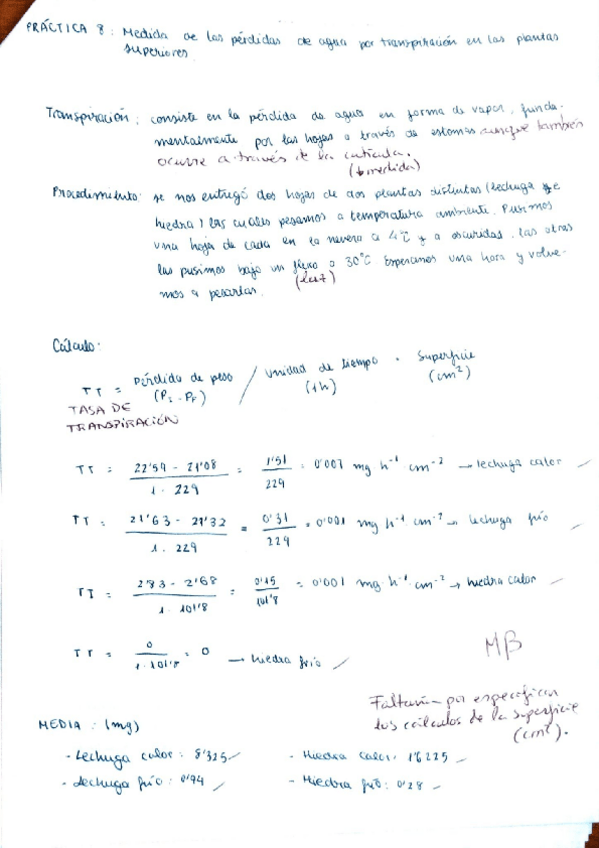 PRÁCTICA 8: Medida de las pérdidas de agua por transpiración en las plantas
superiores
Transpiración: consiste en la pérdida de agua en forma de vapor, funda-
mentalmente por las hojas a través de estomas aunque también
ocurre a través de la cutícula.
Procedimiento: se nos entregó dos hojas de dos plantas distintas (lechuga y de
hiedra) las cuales pesamos a temperatura ambiente. Pusimos
una hoja de cada en la nevera a 4°C y a oscuridad. las otras
las pusimos bajo un flexo a 30°C Esperamos una hora y volve-
(luz)
mos a pesarlas.
Cálculo:
TT = Pérdida de peso / Unidad de tiempo · Superficie
(PI - PF) (1h) (cm²)
TASA DE
TRANSPIRACIÓN
TT = 22'59 - 21'08 / 1 · 229 = 1'51 / 229 = 0'007 mg h⁻¹ cm⁻² → lechuga calor
TT = 21'63 - 21'32 / 1 · 229 = 0'31 / 229 = 0'001 mg h⁻¹ cm⁻² → lechuga frío
TT = 2'83 - 2'68 / 1 · 101'8 = 0'15 / 101'8 = 0'001 mg h⁻¹ cm⁻² → hiedra calor
TT = 0 / 1 · 101'8 = 0 → hiedra frío
MB
Faltaría por especificar
los cálculos de la superficie
(cm²).
MEDIA: (mg)
- Lechuga calor: 8'325 - Hiedra calor: 1'6225
- Lechuga frío: 0'94 - Hiedra frío: 0'28